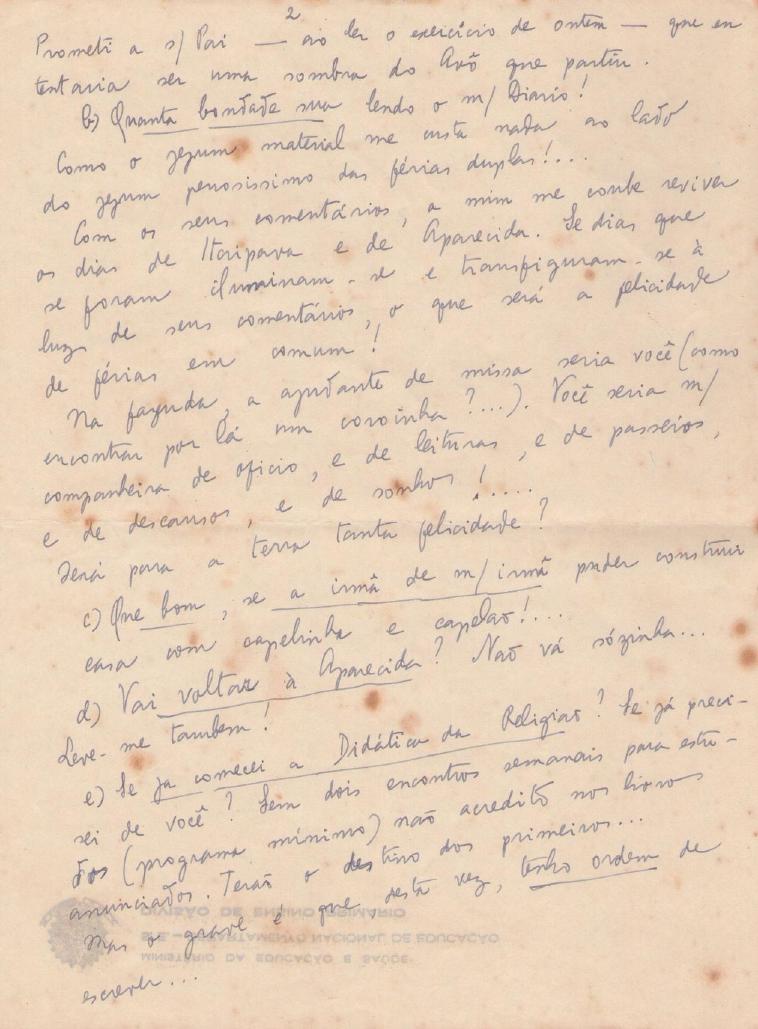 2
Prometi a s/ Pai — ao ler o exercício de ontem — que eu
tentaria ser uma sombra do Avô que partiu.
b) Quanta bondade sua lendo o m/ Diario!
Como o jejum material me custa nada ao lado
do jejum penosissimo das férias duplas!...
Com os seus comentários, a mim me coube reviver
os dias de Itaipava e de Aparecida. Se dias que
se foram iluminam-se e transfiguram-se à
luz de seus comentários, o que será a felicidade
de férias em comum!
Na fazenda, a ajudante de missa seria você (como
encontrar por lá um coroinha?...). Você seria m/
companheira de oficio, e de leituras, e de passeios,
e de descansos, e de sonhos!....
Será para a terra tanta felicidade?
c) Que bom, se a irmã de m/ irmã puder construir
casa com capelinha e capelão!...
d) Vai voltar à Aparecida? Não vá sózinha...
Leve-me tambem!
e) Se já comecei a Didática da Religião? Se já preci-
sei de você? Sem dois encontros semanais para estu-
dos (programa mínimo) não acredito nos livros
anunciados. Terão o destino dos primeiros...
Mas o grave é que, desta vez, tenho ordem de
escrever...
MINISTÉRIO DA EDUCAÇÃO E SAÚDE
DEPARTAMENTO NACIONAL DE EDUCAÇÃO
DIVISÃO DE ENSINO PRIMÁRIO